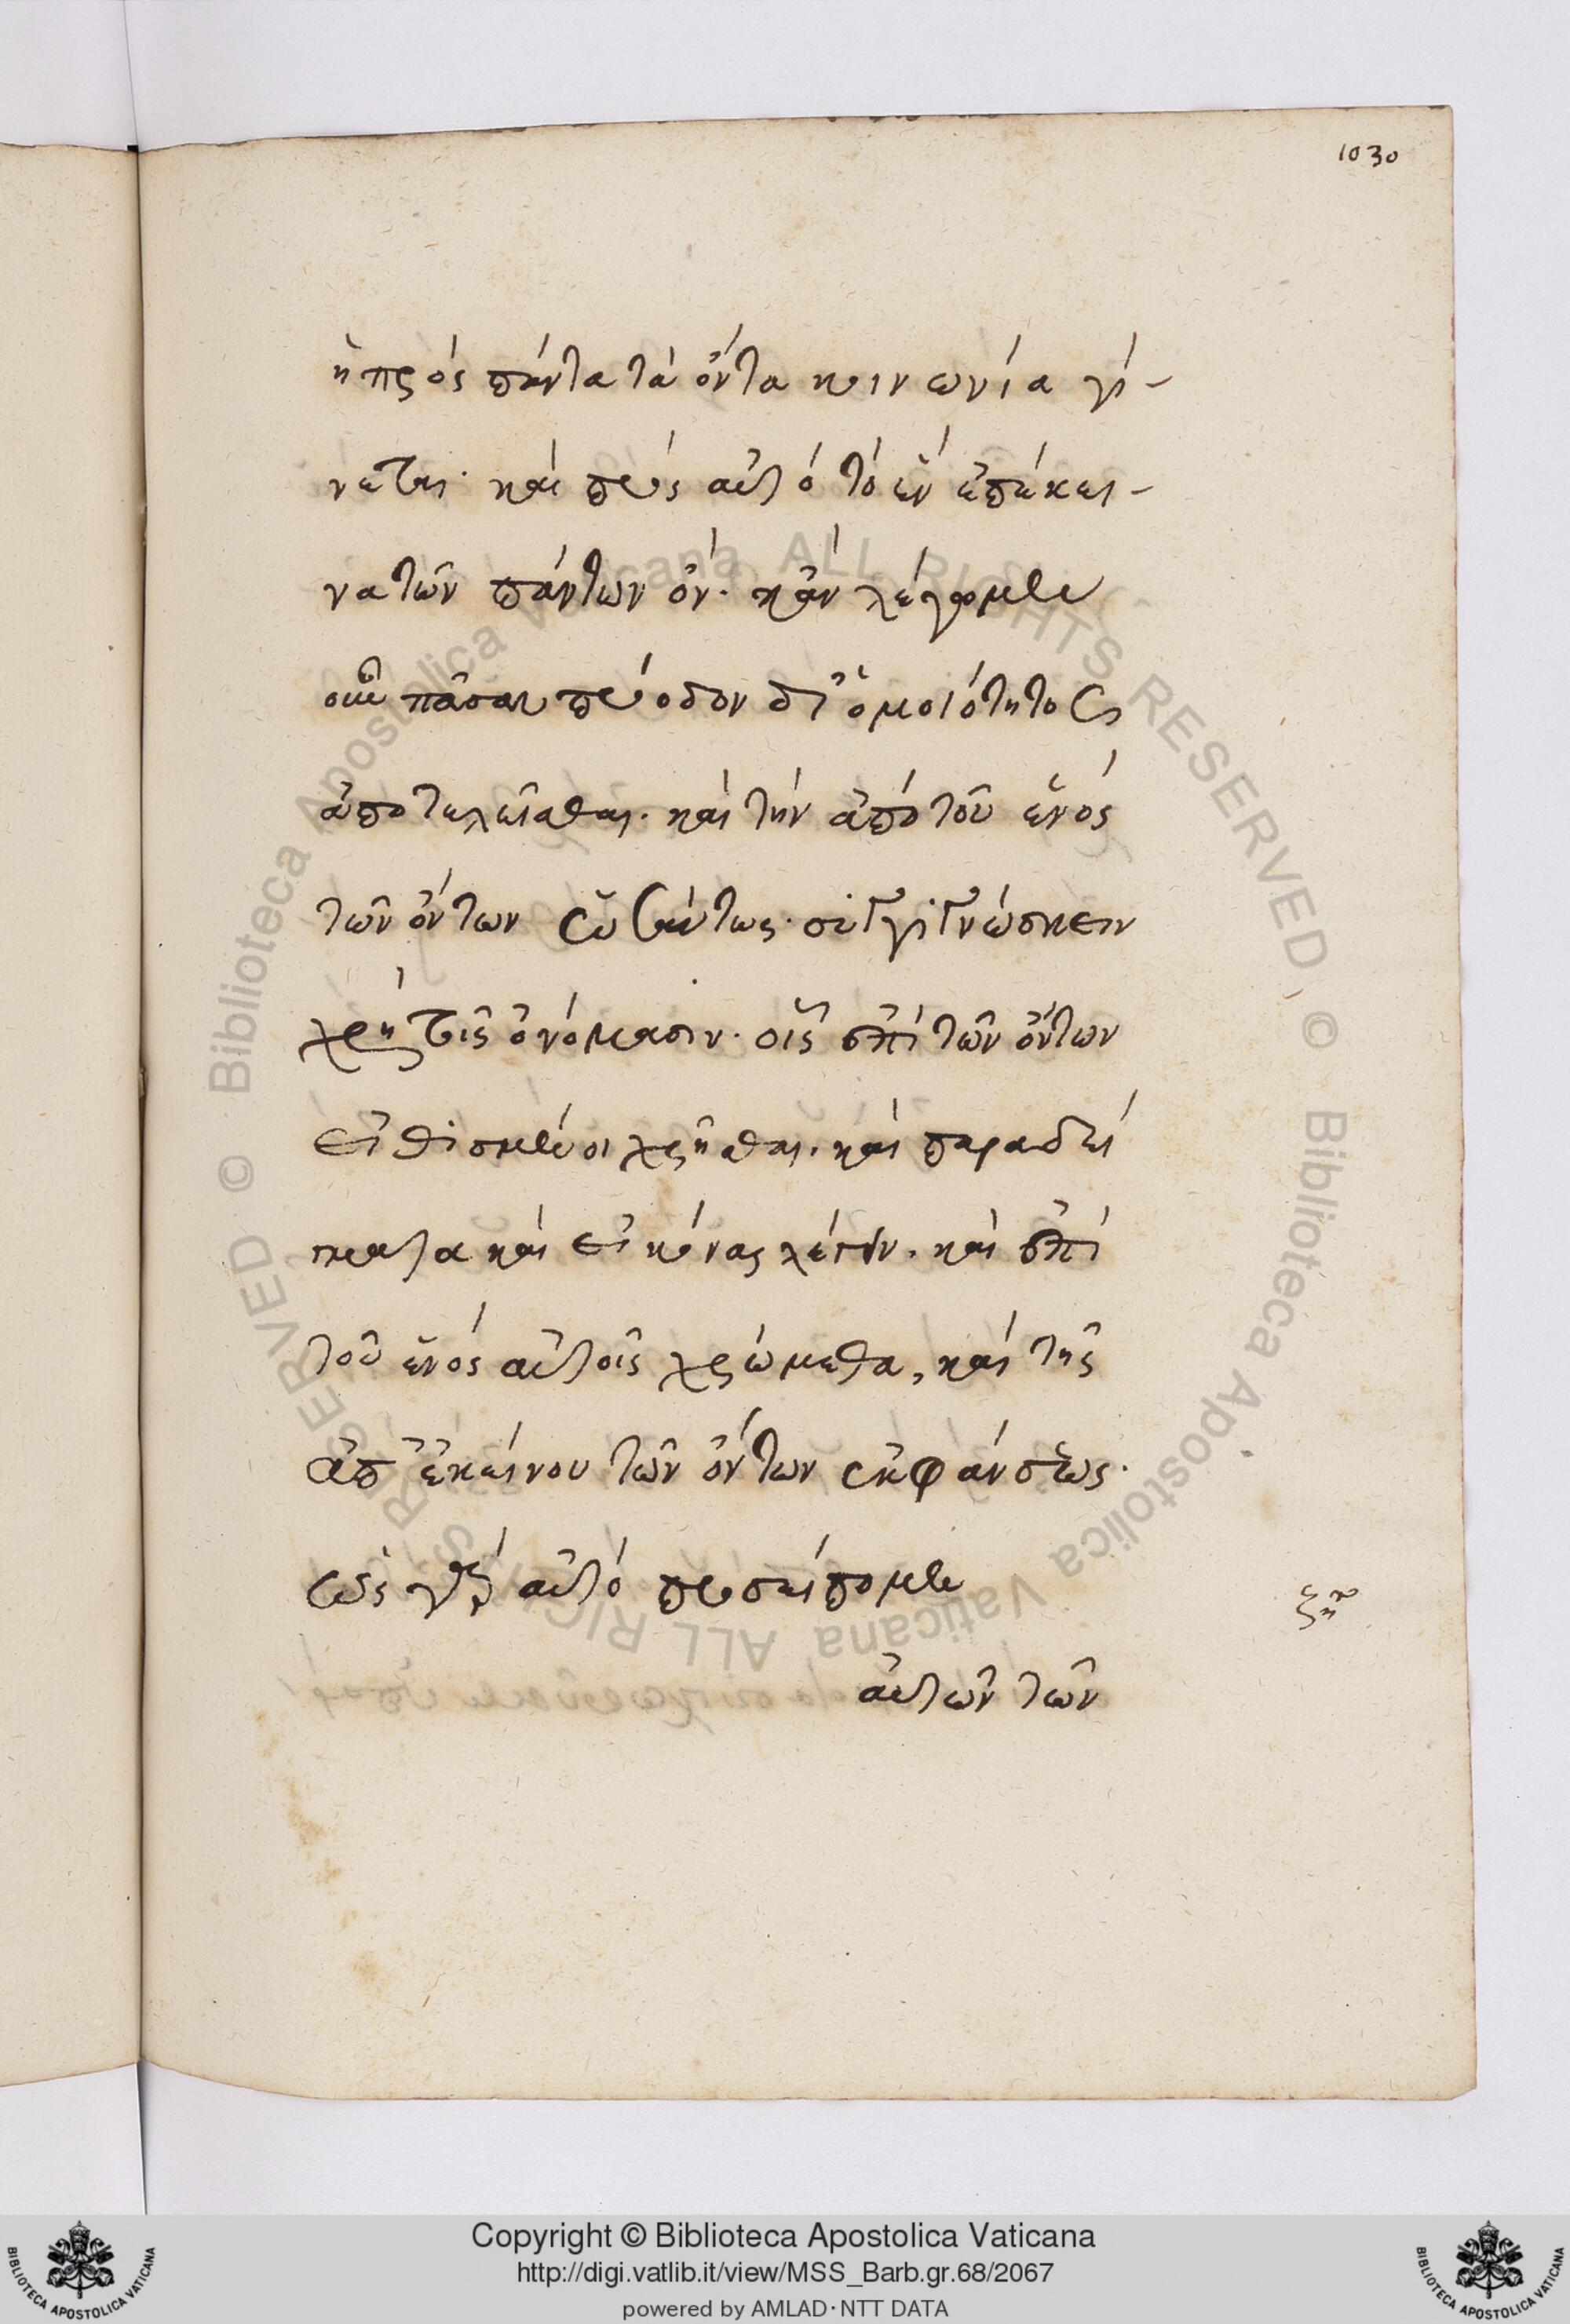 1030
ἡ πρὸς πάντα τὰ ὄντα κοινωνία γί-
νεται· καὶ πρὸς αὐτὸ τὸ ἓν ἐπέκει-
να τῶν πάντων ὄν· κἂν λέγωμεν
οὖν πᾶσαν πρόοδον δι' ὁμοιότητος
ἀποτελεῖσθαι· καὶ τὴν ἀπὸ τοῦ ἑνὸς
τῶν ὄντων ὡσαύτως· συγγιγνώσκειν
χρὴ τοῖς ὀνόμασιν· οἷς ἐπὶ τῶν ὄντων
εἰθισμένοι χρῆσθαι· καὶ παραδεί
γματα καὶ εἰκόνας λέγειν· καὶ ἐπὶ
τοῦ ἑνὸς αὐτοῖς χρώμεθα, καὶ τῆς
ἀπ' ἐκείνου τῶν ὄντων ἐκφάνσεως·
ὡς γὰρ αὐτὸ προσείπομεν
αὐτῶν τῶν
© Biblioteca Apostolica Vaticana ALL RIGHTS RESERVED © Biblioteca Apostolica Vaticana ALL RIGHTS RESERVED
Copyright © Biblioteca Apostolica Vaticana
http://digi.vatlib.it/view/MSS_Barb.gr.68/2067
powered by AMLAD·NTT DATA
BIBLIOTECA APOSTOLICA VATICANA
BIBLIOTECA APOSTOLICA VATICANA